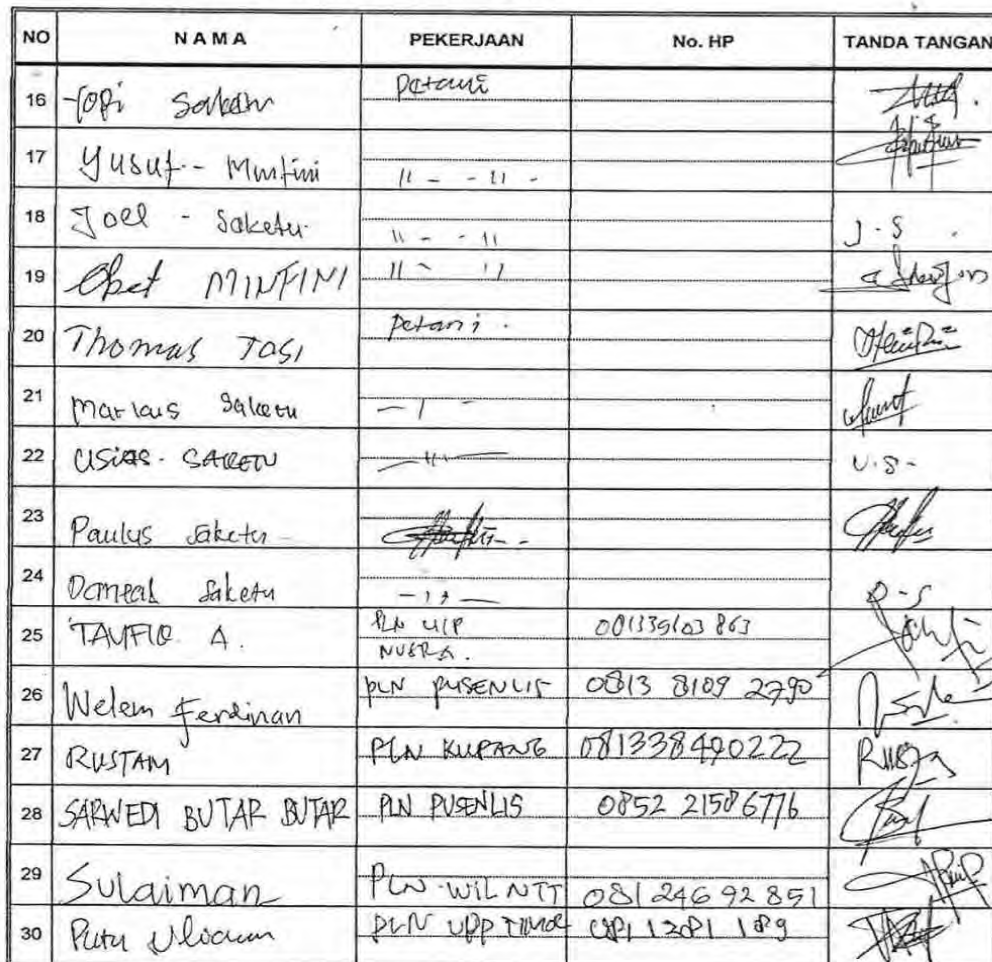 NO NAMA PEKERJAAN No. HP TANDA TANGAN
16 Yopi Saketu Petani
17 Yusuf - Mintini 11 - - 11 -
18 Joel - Saketu 11 - - 11 J - S
19 Obet MINFINI 11 - 11
20 Thomas TOSI Petani
21 Markus Saketu
22 USIAS - SAKETU - 11 - U.S-
23 Paulus Saketu
24 Saketu D-S
25 TAUFIQ A. PLN UIP
NUSRA.
26 Welem Ferdinan PLN PUSENLIS 0813 8109 2790
27 RUSTAM PLN KUPANG 081338490222
28 SARWEDI BUTAR BUTAR PLN PUSENLIS 0852 21586776
29 Sulaiman PLN WIL NTT 081 246 92 851
30 Putu PLN UPP TIMOR